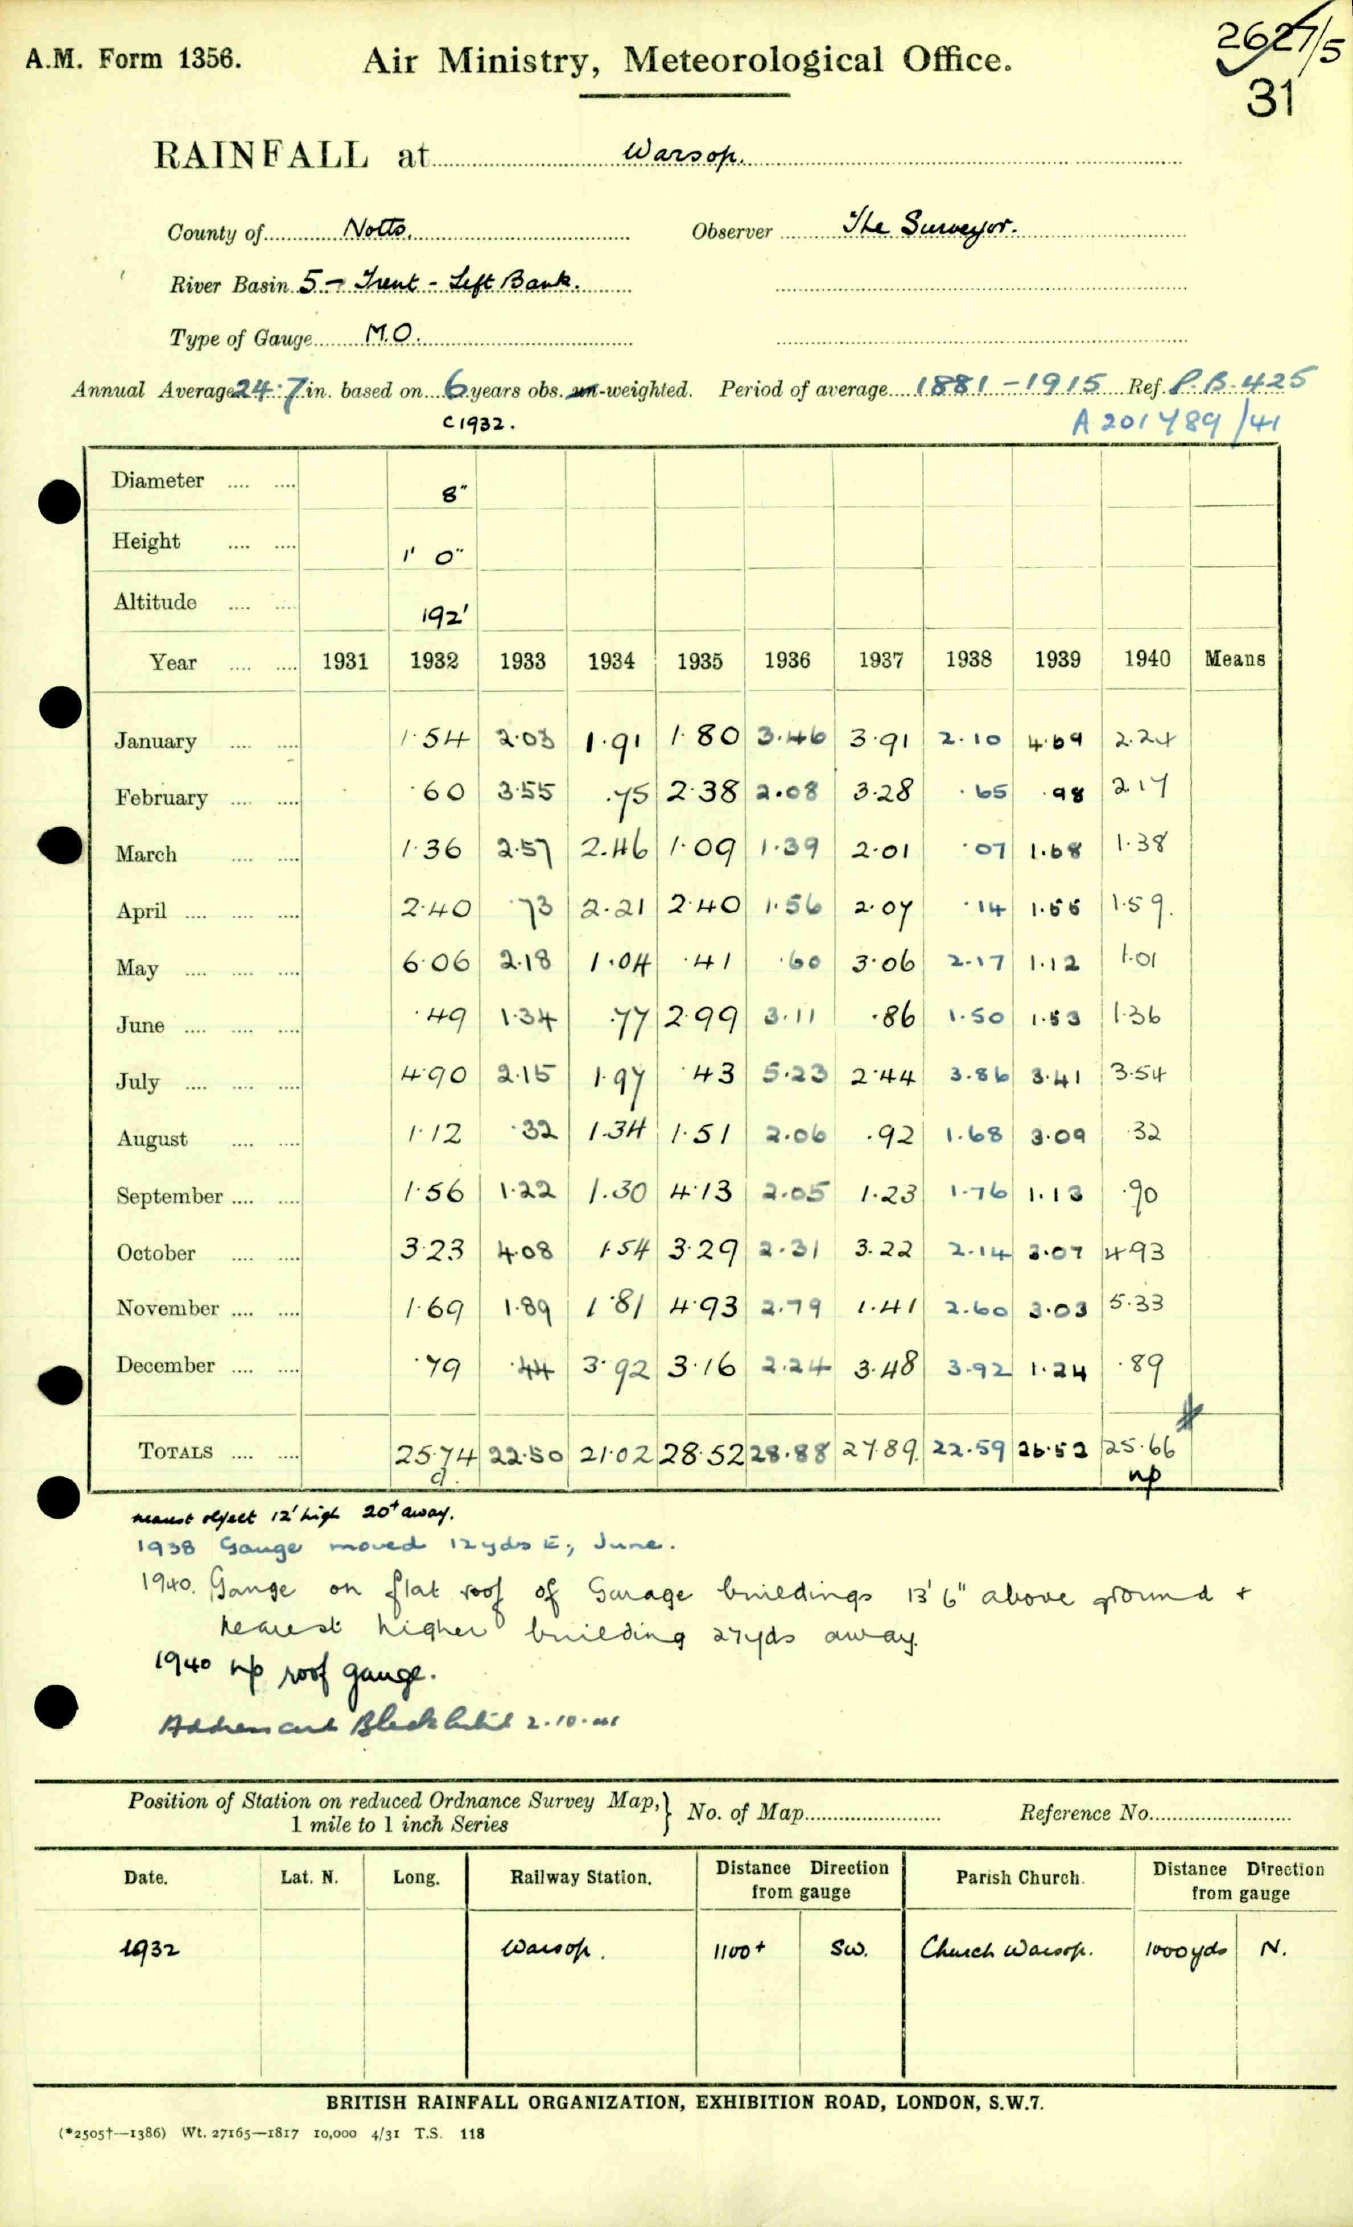 2627/5
A.M. Form 1356. Air Ministry, Meteorological Office.
31
RAINFALL at Warsop.
County of Notts. Observer The Surveyor.
River Basin 5 - Trent - Left Bank.
Type of Gauge M.O.
Annual Average 24.7 in. based on 6 years obs. un-weighted. Period of average 1881-1915 Ref. P.B. 425
C1932. A201489/41
Diameter 8"
Height 1' 0"
Altitude 192'
Year 1931 1932 1933 1934 1935 1936 1937 1938 1939 1940 Means
January 1.54 2.03 1.91 1.80 3.46 3.91 2.10 4.69 2.24
February .60 3.55 .75 2.38 2.08 3.28 .65 .98 2.17
March 1.36 2.57 2.46 1.09 1.39 2.01 .07 1.68 1.38
April 2.40 .73 2.21 2.40 1.56 2.07 .14 1.55 1.59
May 6.06 2.18 1.04 .41 .60 3.06 2.17 1.12 1.01
June .49 1.34 .77 2.99 3.11 .86 1.50 1.53 1.36
July 4.90 2.15 1.97 .43 5.23 2.44 3.86 3.41 3.54
August 1.12 .32 1.34 1.51 2.06 .92 1.68 3.09 .32
September 1.56 1.22 1.30 4.13 2.05 1.23 1.76 1.13 .90
October 3.23 4.08 1.54 3.29 2.31 3.22 2.14 3.07 4.93
November 1.69 1.89 1.81 4.93 2.79 1.41 2.60 3.03 5.33
December .79 .44 3.92 3.16 2.24 3.48 3.92 1.24 .89
TOTALS 25.74 22.50 21.02 28.52 28.88 27.89 22.59 26.52 25.66
d. np
nearest object 12' high 20+ away.
1938 Gauge moved 12 yds E, June.
1940. Gauge on flat roof of Garage buildings 13' 6" above ground +
nearest higher building 27yds away.
1940 np roof gauge.
Address card Blacklisted 2.10.41
Position of Station on reduced Ordnance Survey Map, 1 mile to 1 inch Series } No. of Map Reference No.
Date. Lat. N. Long. Railway Station. Distance Direction from gauge Parish Church. Distance Direction from gauge
1932 Warsop. 1100+ SW. Church Warsop. 1000yds N.
BRITISH RAINFALL ORGANIZATION, EXHIBITION ROAD, LONDON, S.W.7.
(*2505†—1386) Wt. 27165—1817 10,000 4/31 T.S. 118